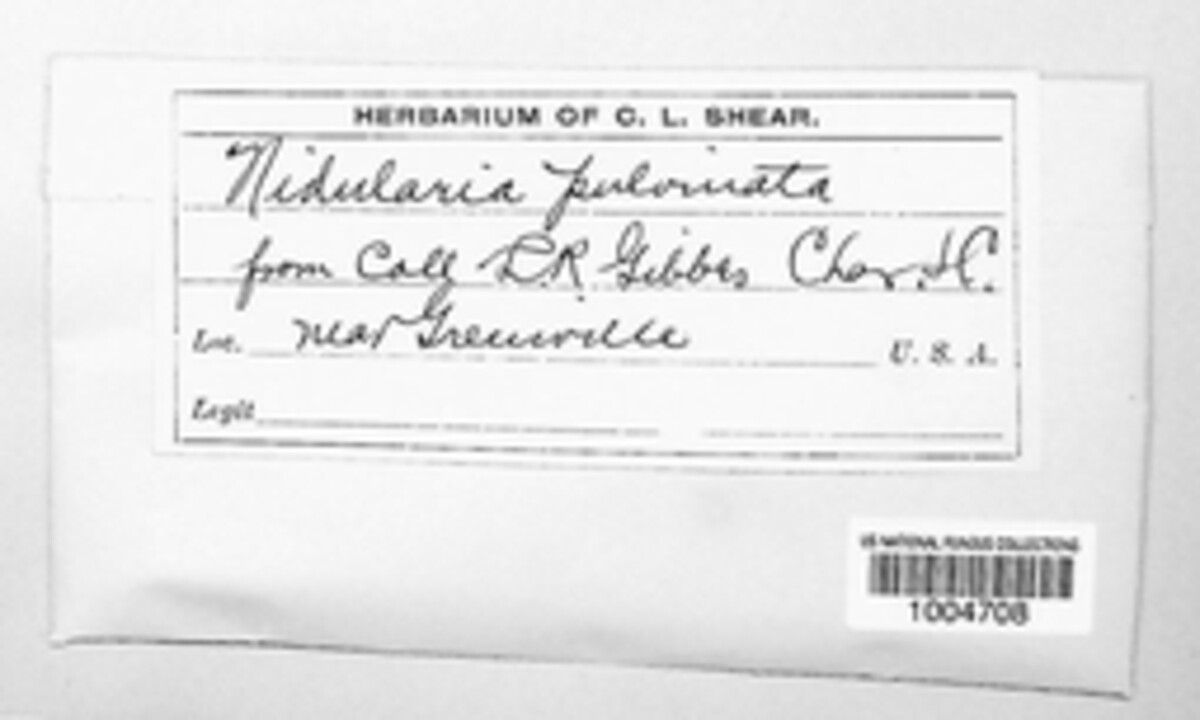 HERBARIUM OF C. L. SHEAR.
Nidularia pulvinata
from Coll L.R. Gibbes Char. 
Loc. near Greenville U. S. A.
Legit
US NATIONAL FUNGUS COLLECTIONS
1004708